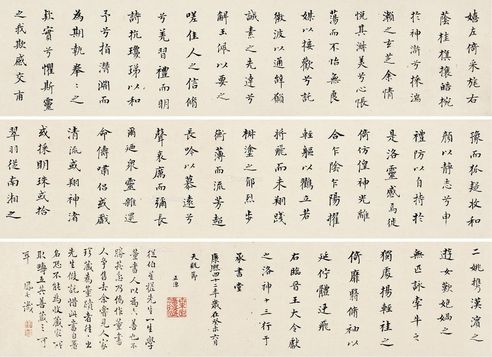 嬉左倚采旄右
蔭桂旗攘皓腕
於神滸兮採湍
瀨之玄芝余情
悅其淑美兮心振
蕩而不怡無良
媒以接歡兮託
微波以通辭願
誠素之先達兮
解玉佩以要之
嗟佳人之信脩
兮羌習禮而明
詩抗瓊珶以和
予兮指潛淵而
為期執拳〻之
款實兮懼斯靈
之我欺感交甫
豫而狐疑收和
顏以靜志兮申
禮防以自持於
是洛靈感焉徙
倚仿偟神光離
合乍陰乍陽擢
輕軀以鶴立若
將飛而未翔踐
椒塗之郁烈步
衡薄而流芳超
長吟以慕遠兮
聲哀厲而彌長
爾迺衆靈雜遝
命儔嘯侶或戲
清流或翔神渚
或採明珠或拾
翠羽從南湘之
二姚攜漢濱之
遊女歎炮媧之
無匹詠牽牛之
獨處揚輕袿之
倚靡翳脩袖以
延佇體迅飛
右臨晉王大令獻
之洛神十三行于
承書堂
康熙四十年歲在六月
天貺節
從伯星槎先生一生學
董書人以為善也不